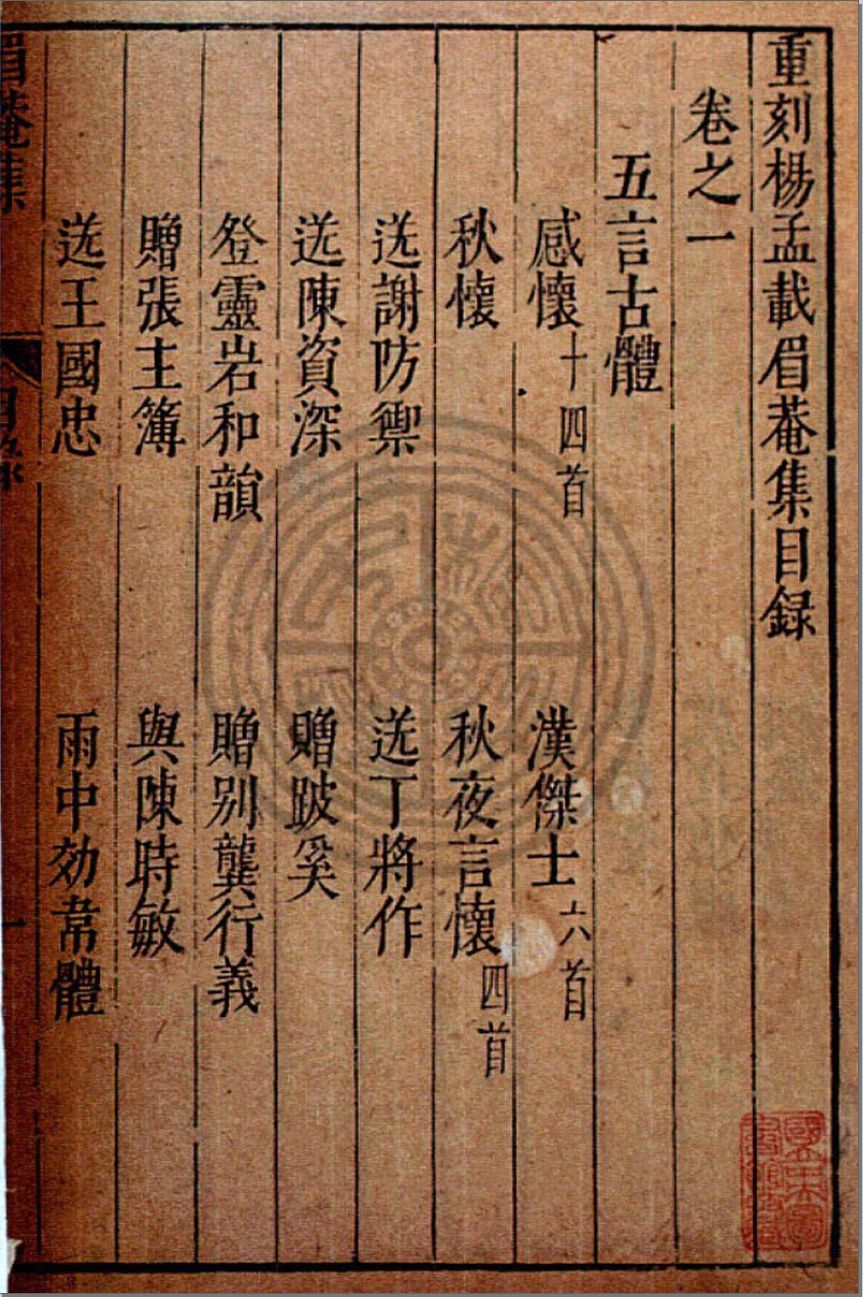 重刻楊孟載眉菴集目録
卷之一
五言古體
感懷十四首 漢傑士六首
秋懷 秋夜言懷四首
送謝防禦 送丁將作
送陳資深 贈跛奚
登靈岩和韻 贈別龔行義
贈張主簿 與陳時敏
送王國忠 雨中効韋體
眉菴集 目録 一